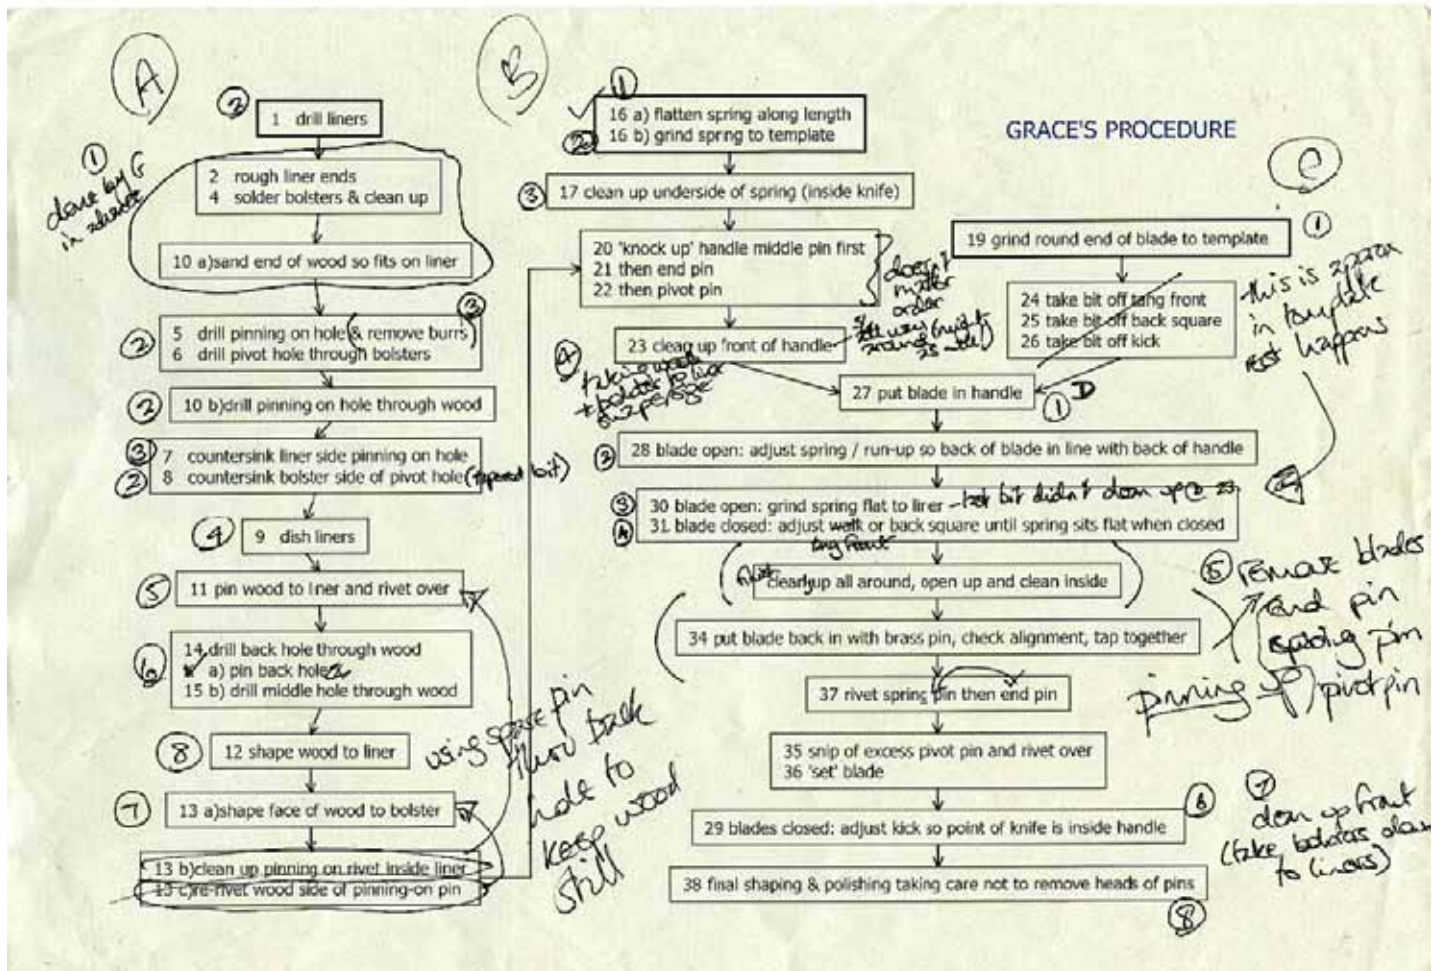 A
B
GRACE'S PROCEDURE
C
2
1 drill liners
1
done by G
in advance
2 rough liner ends
4 solder bolsters & clean up
10 a)sand end of wood so fits on liner
3
2
5 drill pinning on hole (& remove burrs)
6 drill pivot hole through bolsters
2
10 b)drill pinning on hole through wood
3
7 countersink liner side pinning on hole
2
8 countersink bolster side of pivot hole (tapered bit)
4
9 dish liners
5
11 pin wood to liner and rivet over
6
14 drill back hole through wood
a) pin back hole
15 b) drill middle hole through wood
8
12 shape wood to liner
7
13 a)shape face of wood to bolster
13 b)clean up pinning on rivet inside liner
13 c)re-rivet wood side of pinning-on pin
using spare pin
thro back
hole to
keep wood
still
1
16 a) flatten spring along length
2
16 b) grind spring to template
3
17 clean up underside of spring (inside knife)
20 'knock up' handle middle pin first
21 then end pin
22 then pivot pin
doesn't
matter
order
4
23 clean up front of handle
taking wood
19 grind round end of blade to template
1
24 take bit off tang front
25 take bit off back square
26 take bit off kick
this is
in template
happens
27 put blade in handle
1 D
2
28 blade open: adjust spring / run-up so back of blade in line with back of handle
3
30 blade open: grind spring flat to lirer - bit didn't clean up @ 23
4
31 blade closed: adjust walk or back square until spring sits flat when closed
tang front
clean up all around, open up and clean inside
34 put blade back in with brass pin, check alignment, tap together
5
remove blades
end pin
spring pin
pivot pin
pinning up
37 rivet spring pin then end pin
35 snip of excess pivot pin and rivet over
36 'set' blade
6
29 blades closed: adjust kick so point of knife is inside handle
7
clean up front
(take bolsters down
to liners)
38 final shaping & polishing taking care not to remove heads of pins
8